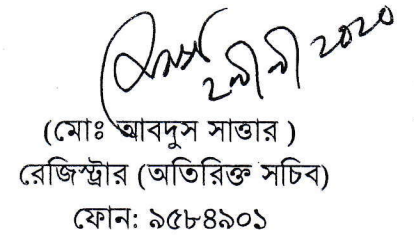 ২০২০
(মোঃ আবদুস সাত্তার )
রেজিস্ট্রার (অতিরিক্ত সচিব)
ফোন: ৯৫৮৪৯০১